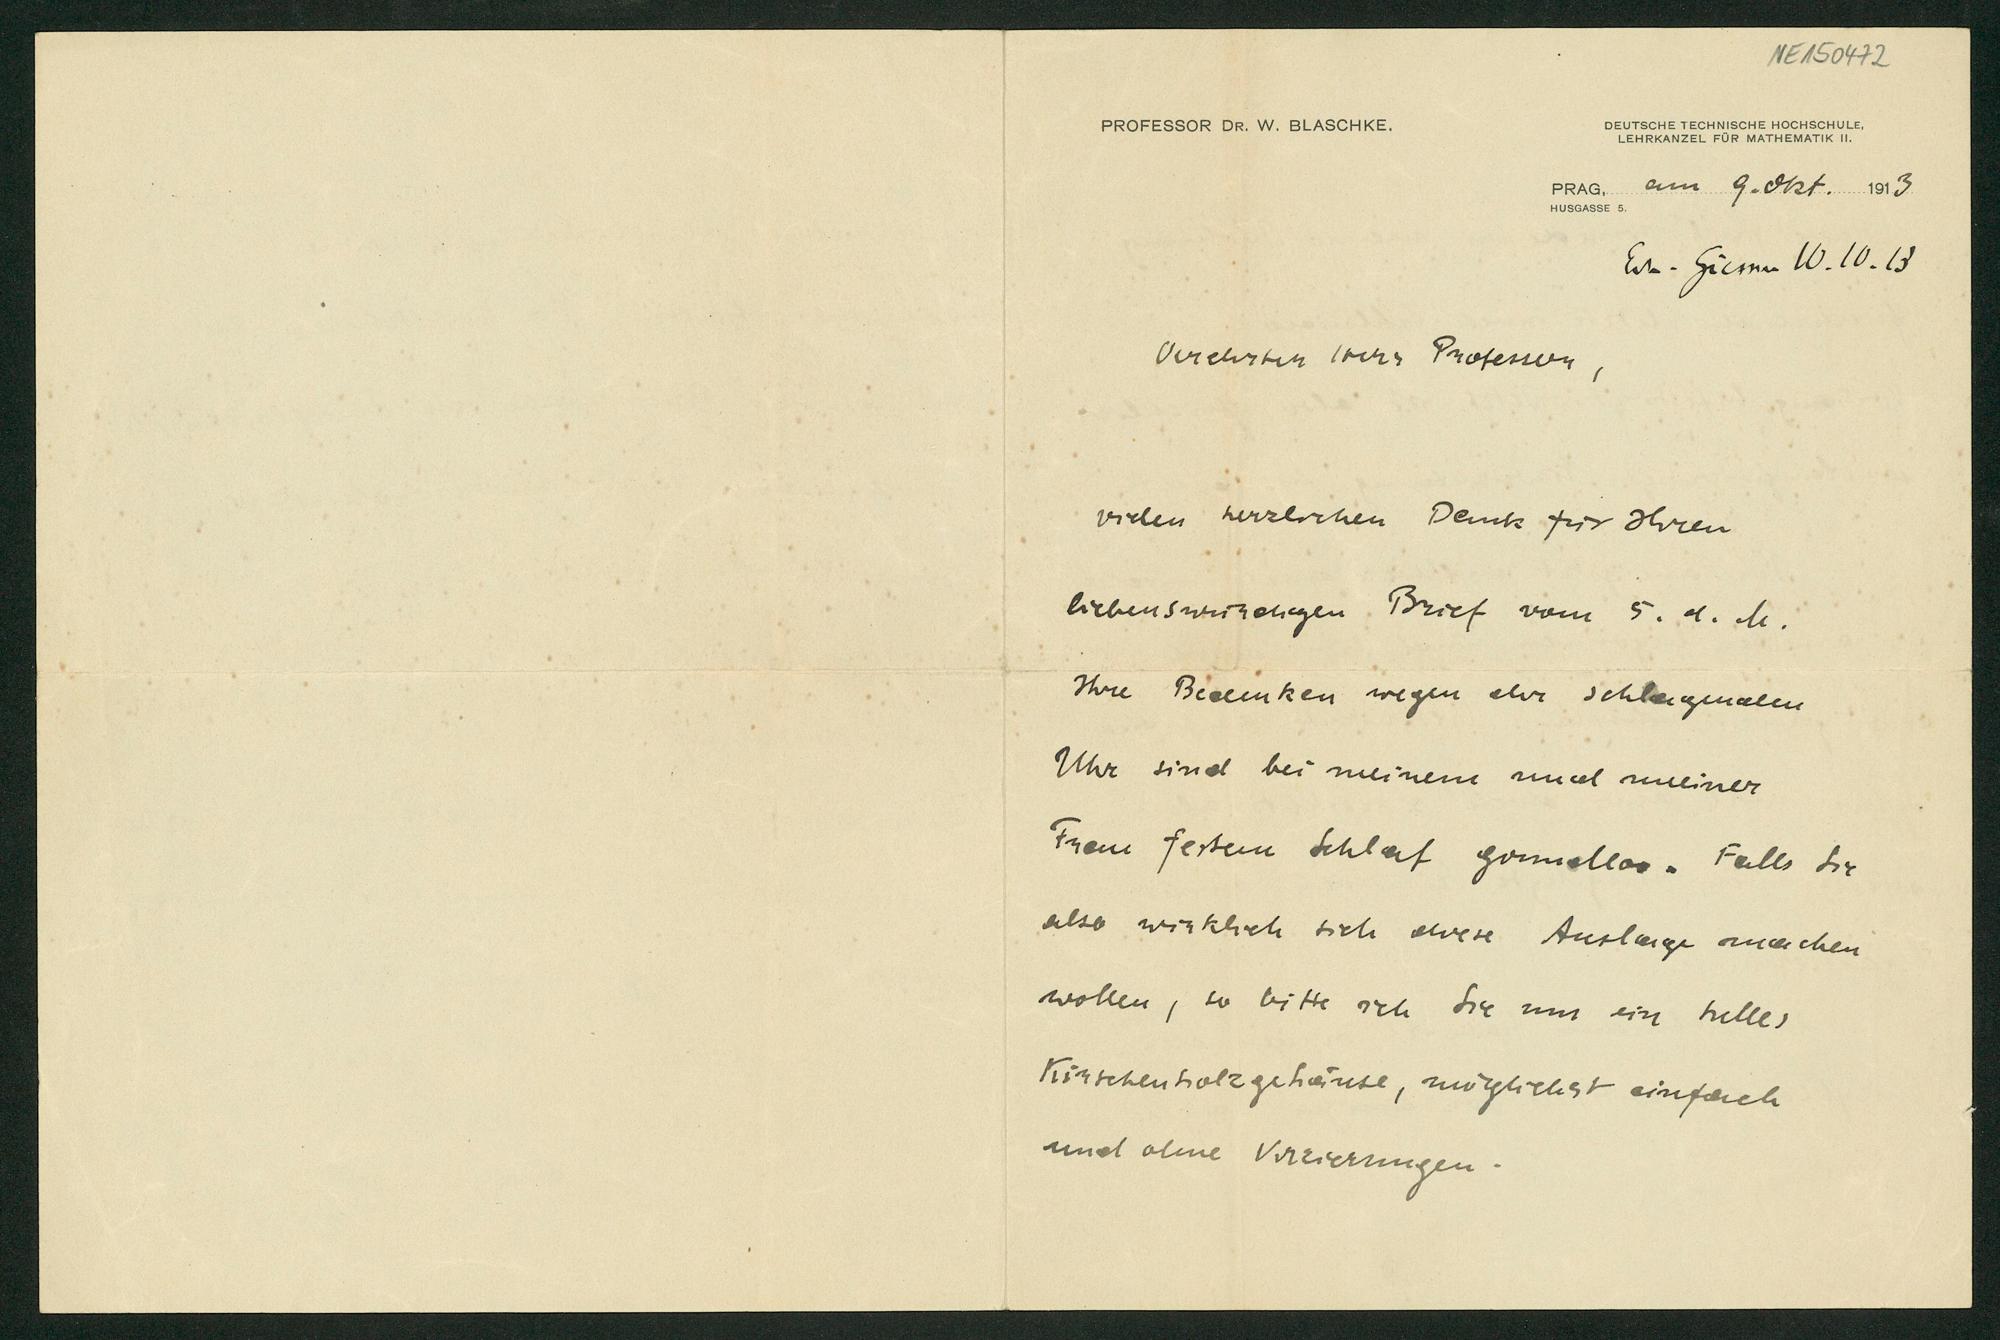 NE150472
PROFESSOR DR. W. BLASCHKE.
DEUTSCHE TECHNISCHE HOCHSCHULE,
LEHRKANZEL FÜR MATHEMATIK II.
PRAG, am 9. Okt. 1913
HUSGASSE 5.
Giessen 10.10.13
Verehrter Herr Professor,
vielen herzlichen Dank für Ihren
liebenswürdigen Brief vom 5. d. M.
Ihre Bedenken wegen der schlagenden
Uhr sind bei meinem und meiner
Frau festem Schlaf grundlos. Falls Sie
also wirklich sich diese Auslage machen
wollen, so bitte ich Sie um ein helles
Kirschenholzgehäuse, möglichst einfach
und ohne Verzierungen.